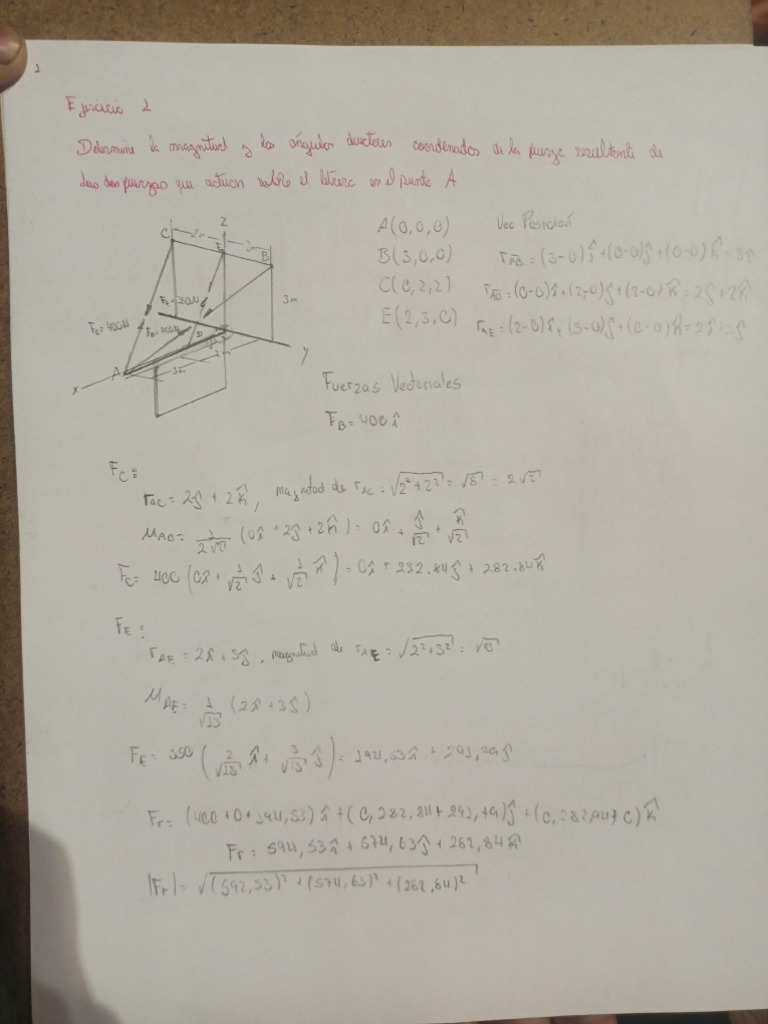 1
Ejercicio 2
Determine la magnitud y los ángulos directores coordenados de la fuerza resultante de
las dos fuerzas que actuan sobre el letrero en el punte A
Z
C
2m
E
2m
B
3m
F_E = 350N
F_C = 400N
F_B = 400N
D
A
x
y
3m
2m
A(0,0,0)
B(3,0,0)
C(0,2,2)
E(2,3,0)
Vec Posición
r_AB = (3-0)î + (0-0)ĵ + (0-0)k̂ = 3î
r_AC = (0-0)î + (2-0)ĵ + (2-0)k̂ = 2ĵ + 2k̂
r_AE = (2-0)î + (3-0)ĵ + (0-0)k̂ = 2î + 3ĵ
Fuerzas Vectoriales
F_B = 400 î
F_C:
r_AC = 2ĵ + 2k̂, magnitud de r_AC = √(2² + 2²) = √8 = 2√2
μ_AC = 1/(2√2) (0î + 2ĵ + 2k̂) = 0î + ĵ/√2 + k̂/√2
F_C = 400 (0î + 1/√2 ĵ + 1/√2 k̂) = 0î + 232.84ĵ + 282.84k̂
F_E:
r_AE = 2î + 3ĵ, magnitud de r_AE = √(2² + 3²) = √13
μ_AE = 1/√13 (2î + 3ĵ)
F_E = 350 (2/√13 î + 3/√13 ĵ) = 194,53î + 291,29ĵ
F_r = (400 + 0 + 194,53)î + (0, 282,84 + 291,79)ĵ + (0, 282,84 + 0)k̂
F_r = 594,53î + 574,63ĵ + 282,84k̂
|F_r| = √((592,53)² + (574,63)² + (282,84)²)